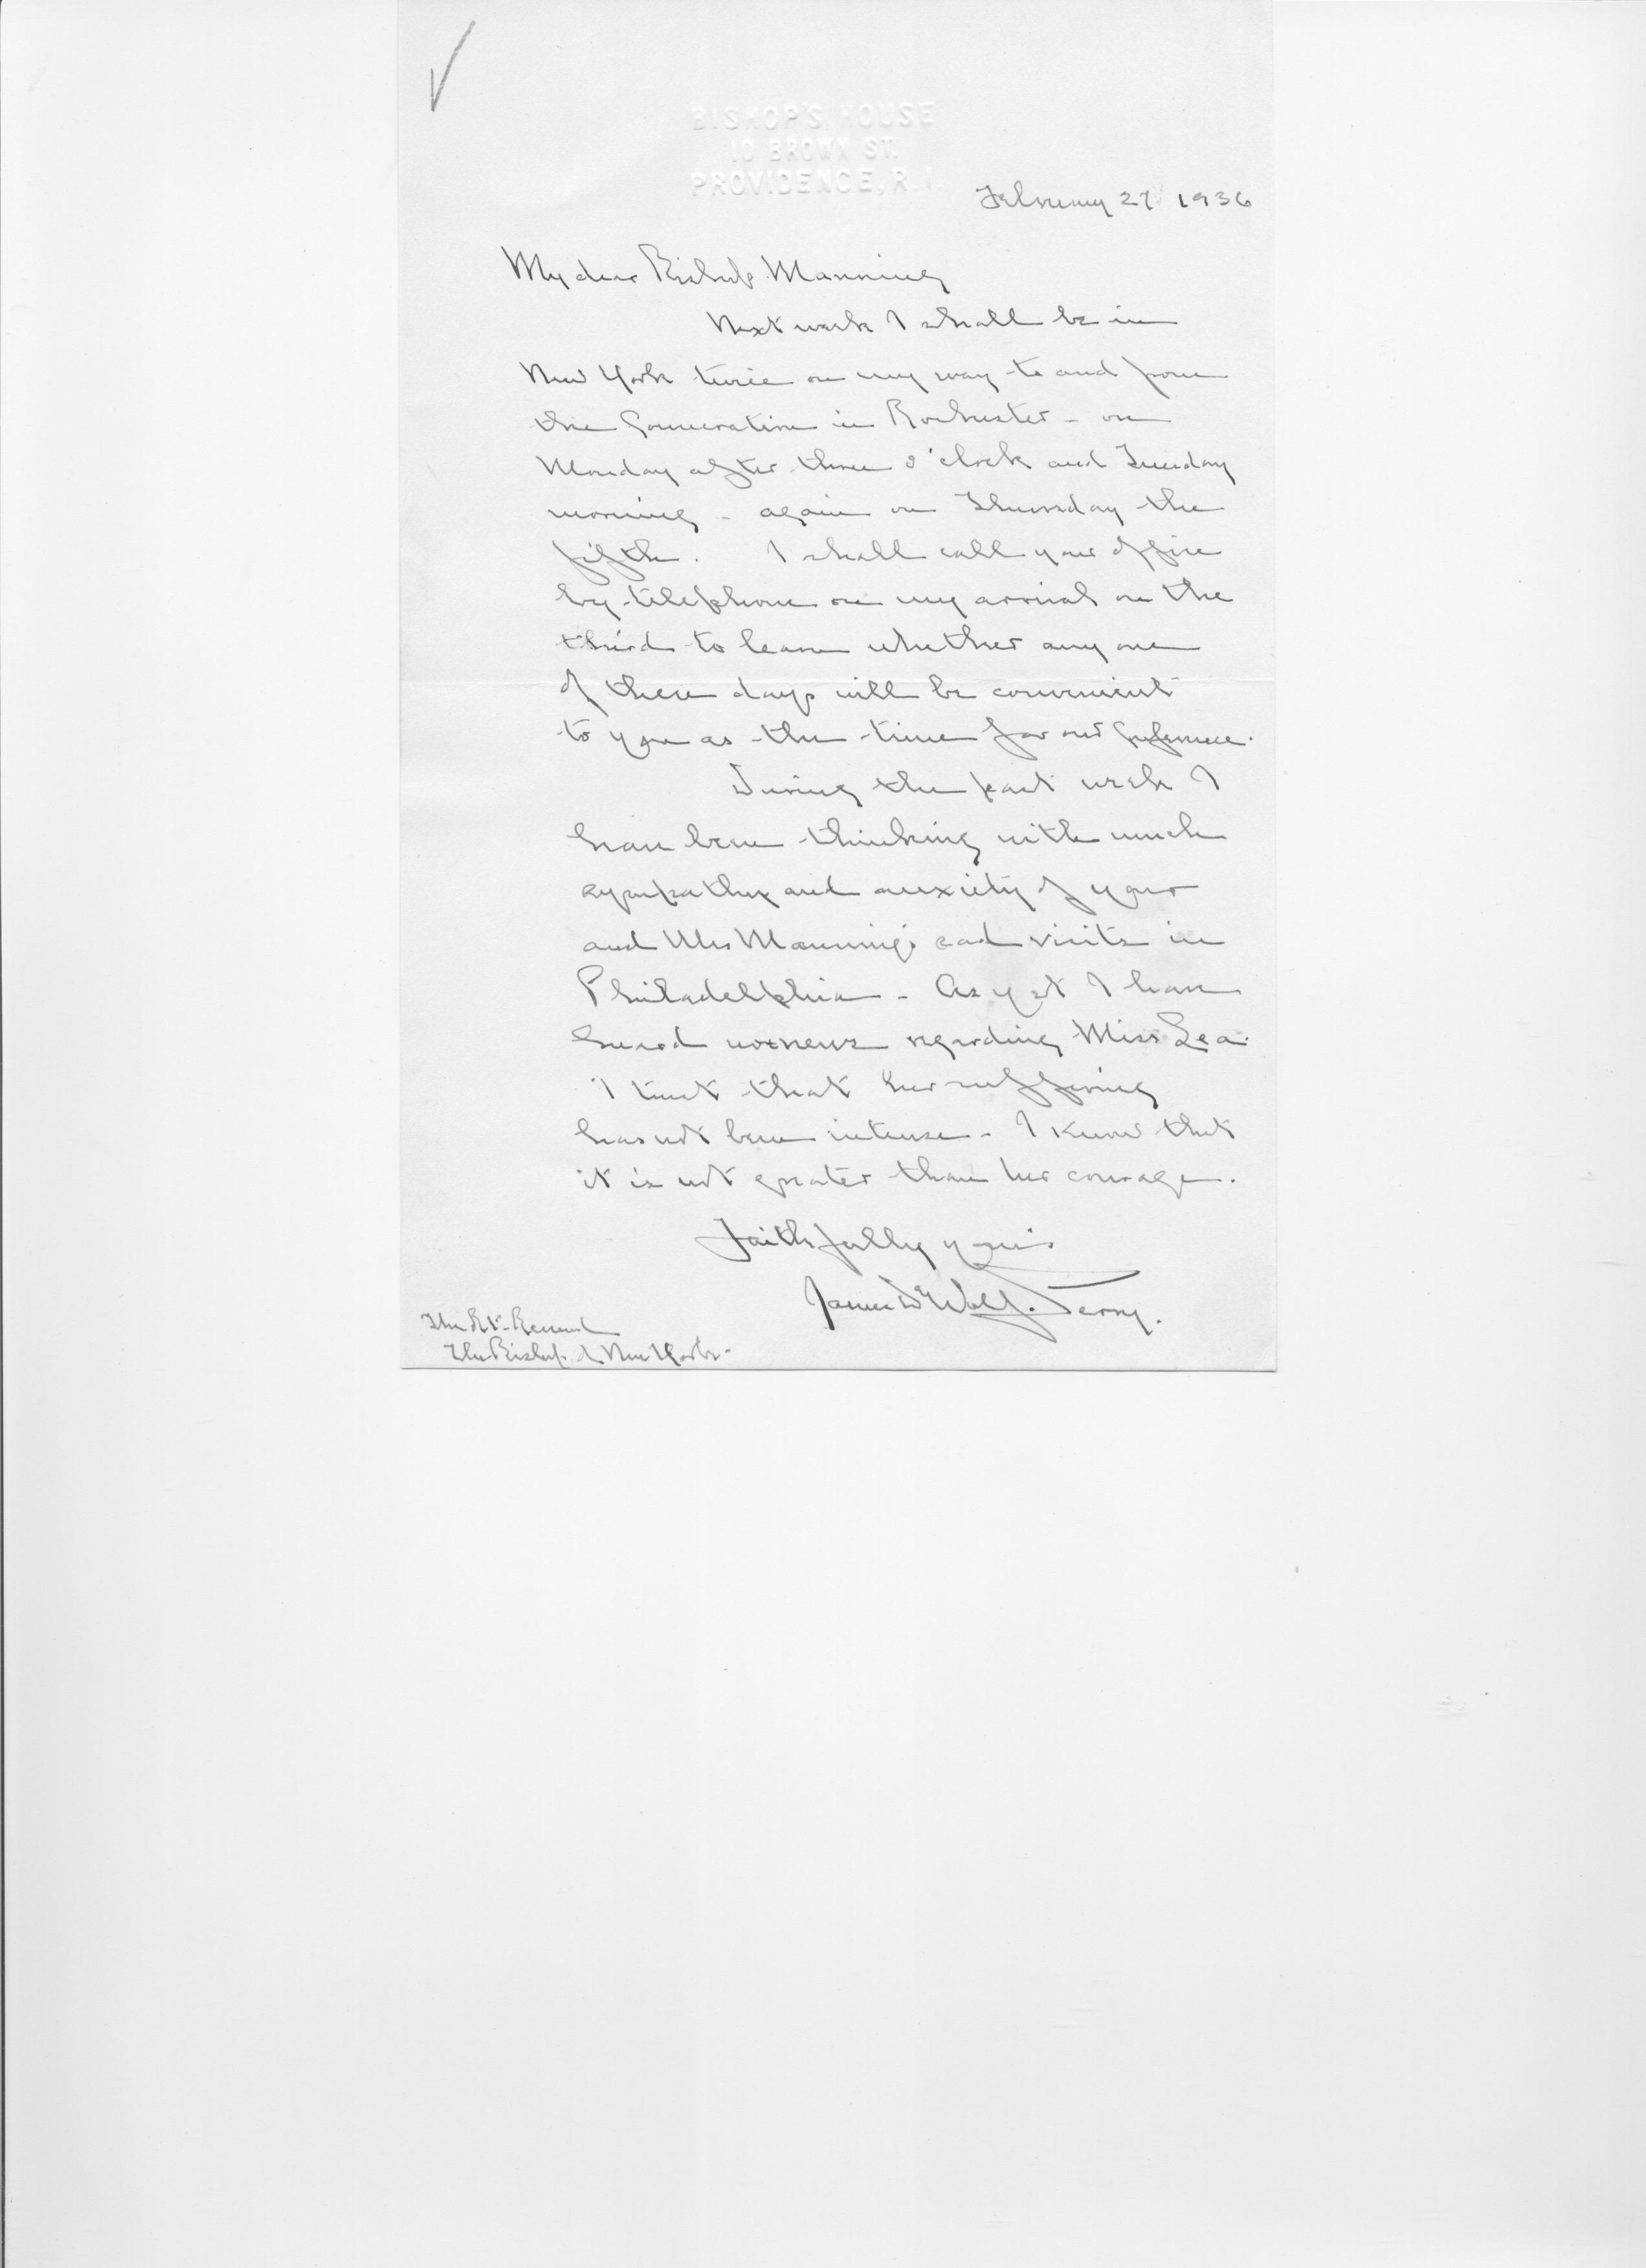 BISHOP'S HOUSE
10 BROWN ST.
PROVIDENCE, R.I.
February 27 1936
My dear Bishop Manning
Next week I shall be in
New York twice on my way to and from
the Consecration in Rochester - on
Monday after three o'clock and Tuesday
morning - again on Thursday the
fifth. I shall call your office
by telephone on my arrival on the
third to learn whether any one
of these days will be convenient
to you as the time for our Conference.
During the past week I
have been thinking with much
sympathy and anxiety of your
and Mrs Manning's sad visits in
Philadelphia - As yet I have
heard no news regarding Miss Lea.
I trust that her suffering
has not been intense - I know that
it is not greater than her courage.
Faithfully yours
James DeWolf Perry.
The Rt. Reverend
The Bishop of New York -